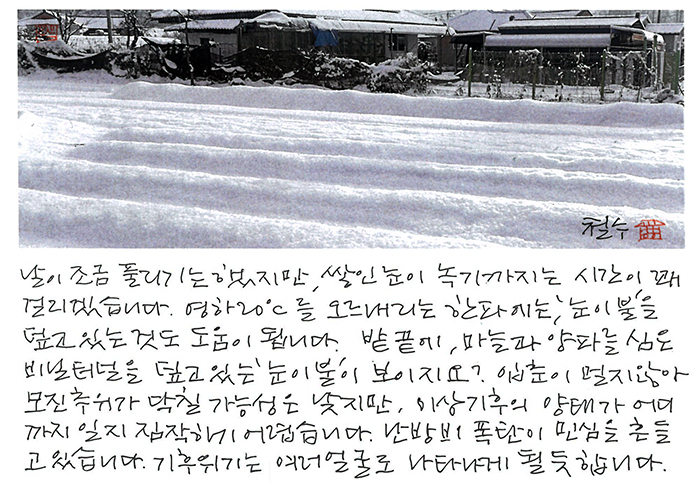 철수
날이 조금 풀리기는 했지만, 쌓인 눈이 녹기까지는 시간이 꽤
걸리겠습니다. 영하 20℃를 오르내리는 한파에는, '눈이불'을
덮고 있는 것도 도움이 됩니다. 밭 끝에, 마늘과 양파를 심은
비닐터널을 덮고 있는 '눈이불'이 보이지요? 입춘이 멀지 않아
모진 추위가 닥칠 가능성은 낮지만, 이상기후의 양태가 어디
까지일지 짐작하기 어렵습니다. 난방비 폭탄이 민심을 흔들
고 있습니다. 기후위기는 여러 얼굴로 나타나게 될 듯합니다.